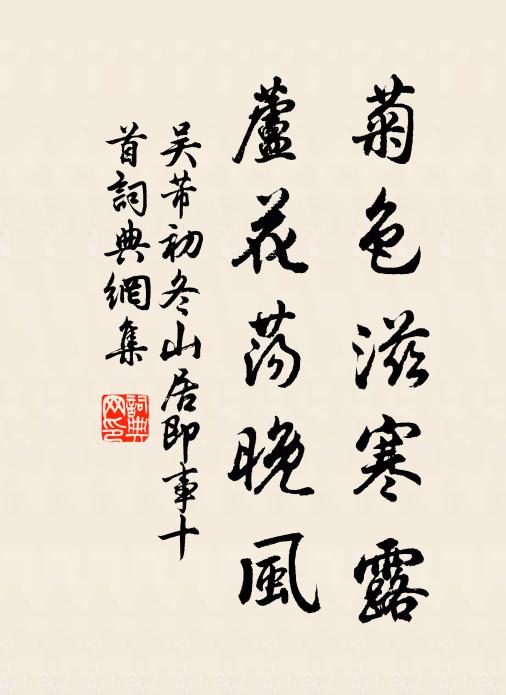 菊色滋寒露
蘆花荡晚風
吴芾初冬山居即事十
首詞典網集
詞典
网印